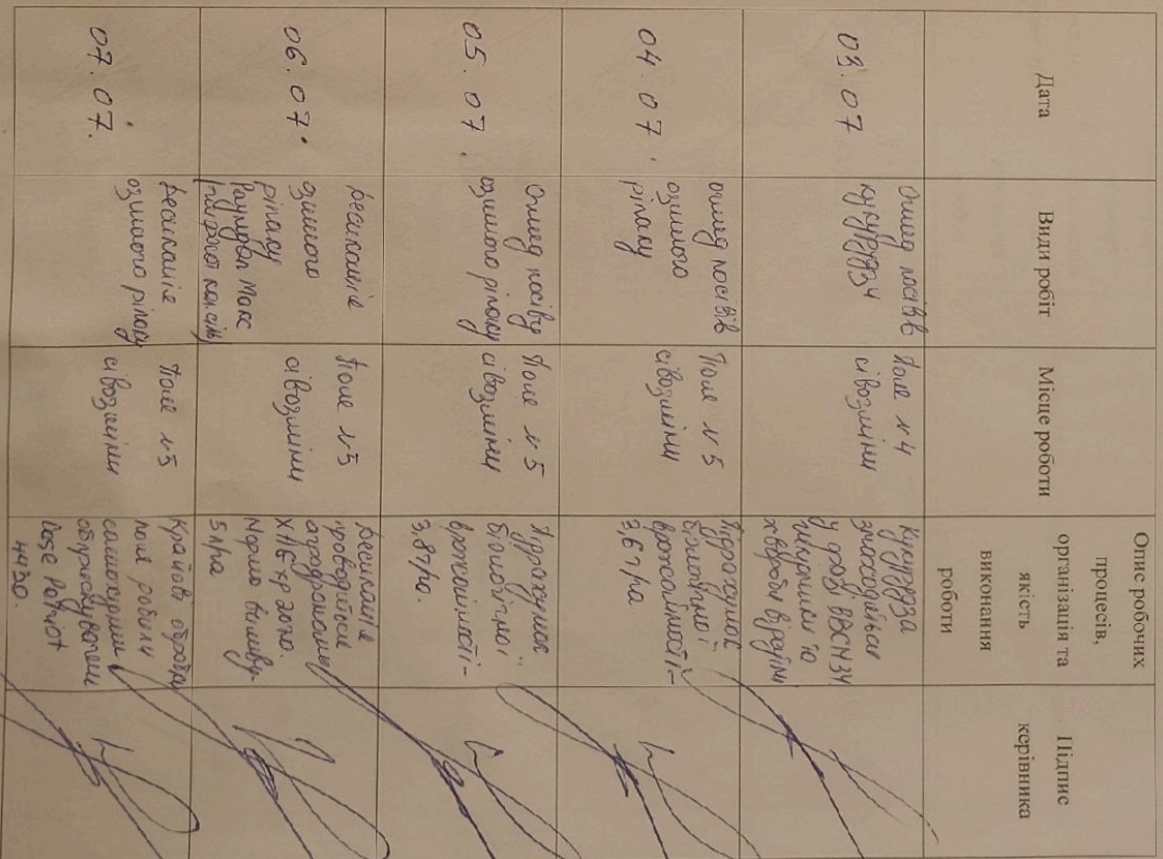 Дата
Види робіт
Місце роботи
Опис робочих
процесів,
організація та
якість
виконання
роботи
Підпис
керівника
03.07
Огляд посівів
кукурудзи
Поле №4
сівозміни
Кукурудза
знаходиться
у фазі ВВСН 34
хвороби відсутні
04.07.
огляд посівів
озимого
ріпаку
Поле №5
сівозміни
Підрахунок
біологічної
врожайності-
3,6т/га
05.07.
Огляд посіву
озимого ріпаку
Поле №5
сівозміни
Підрахунок
біологічної
врожайності-
3,8т/га.
06.07.
десикація
озимого
ріпаку
Раундап Макс
Поле №5
сівозміни
десикація
проводиться
агродронами
Норма виливу-
5 л/га
07.07.
десикація
озимого ріпаку
Поле №5
сівозміни
Крайові обробки
поля робили
самохідним
обприскувачем
Case Patriot
4430.